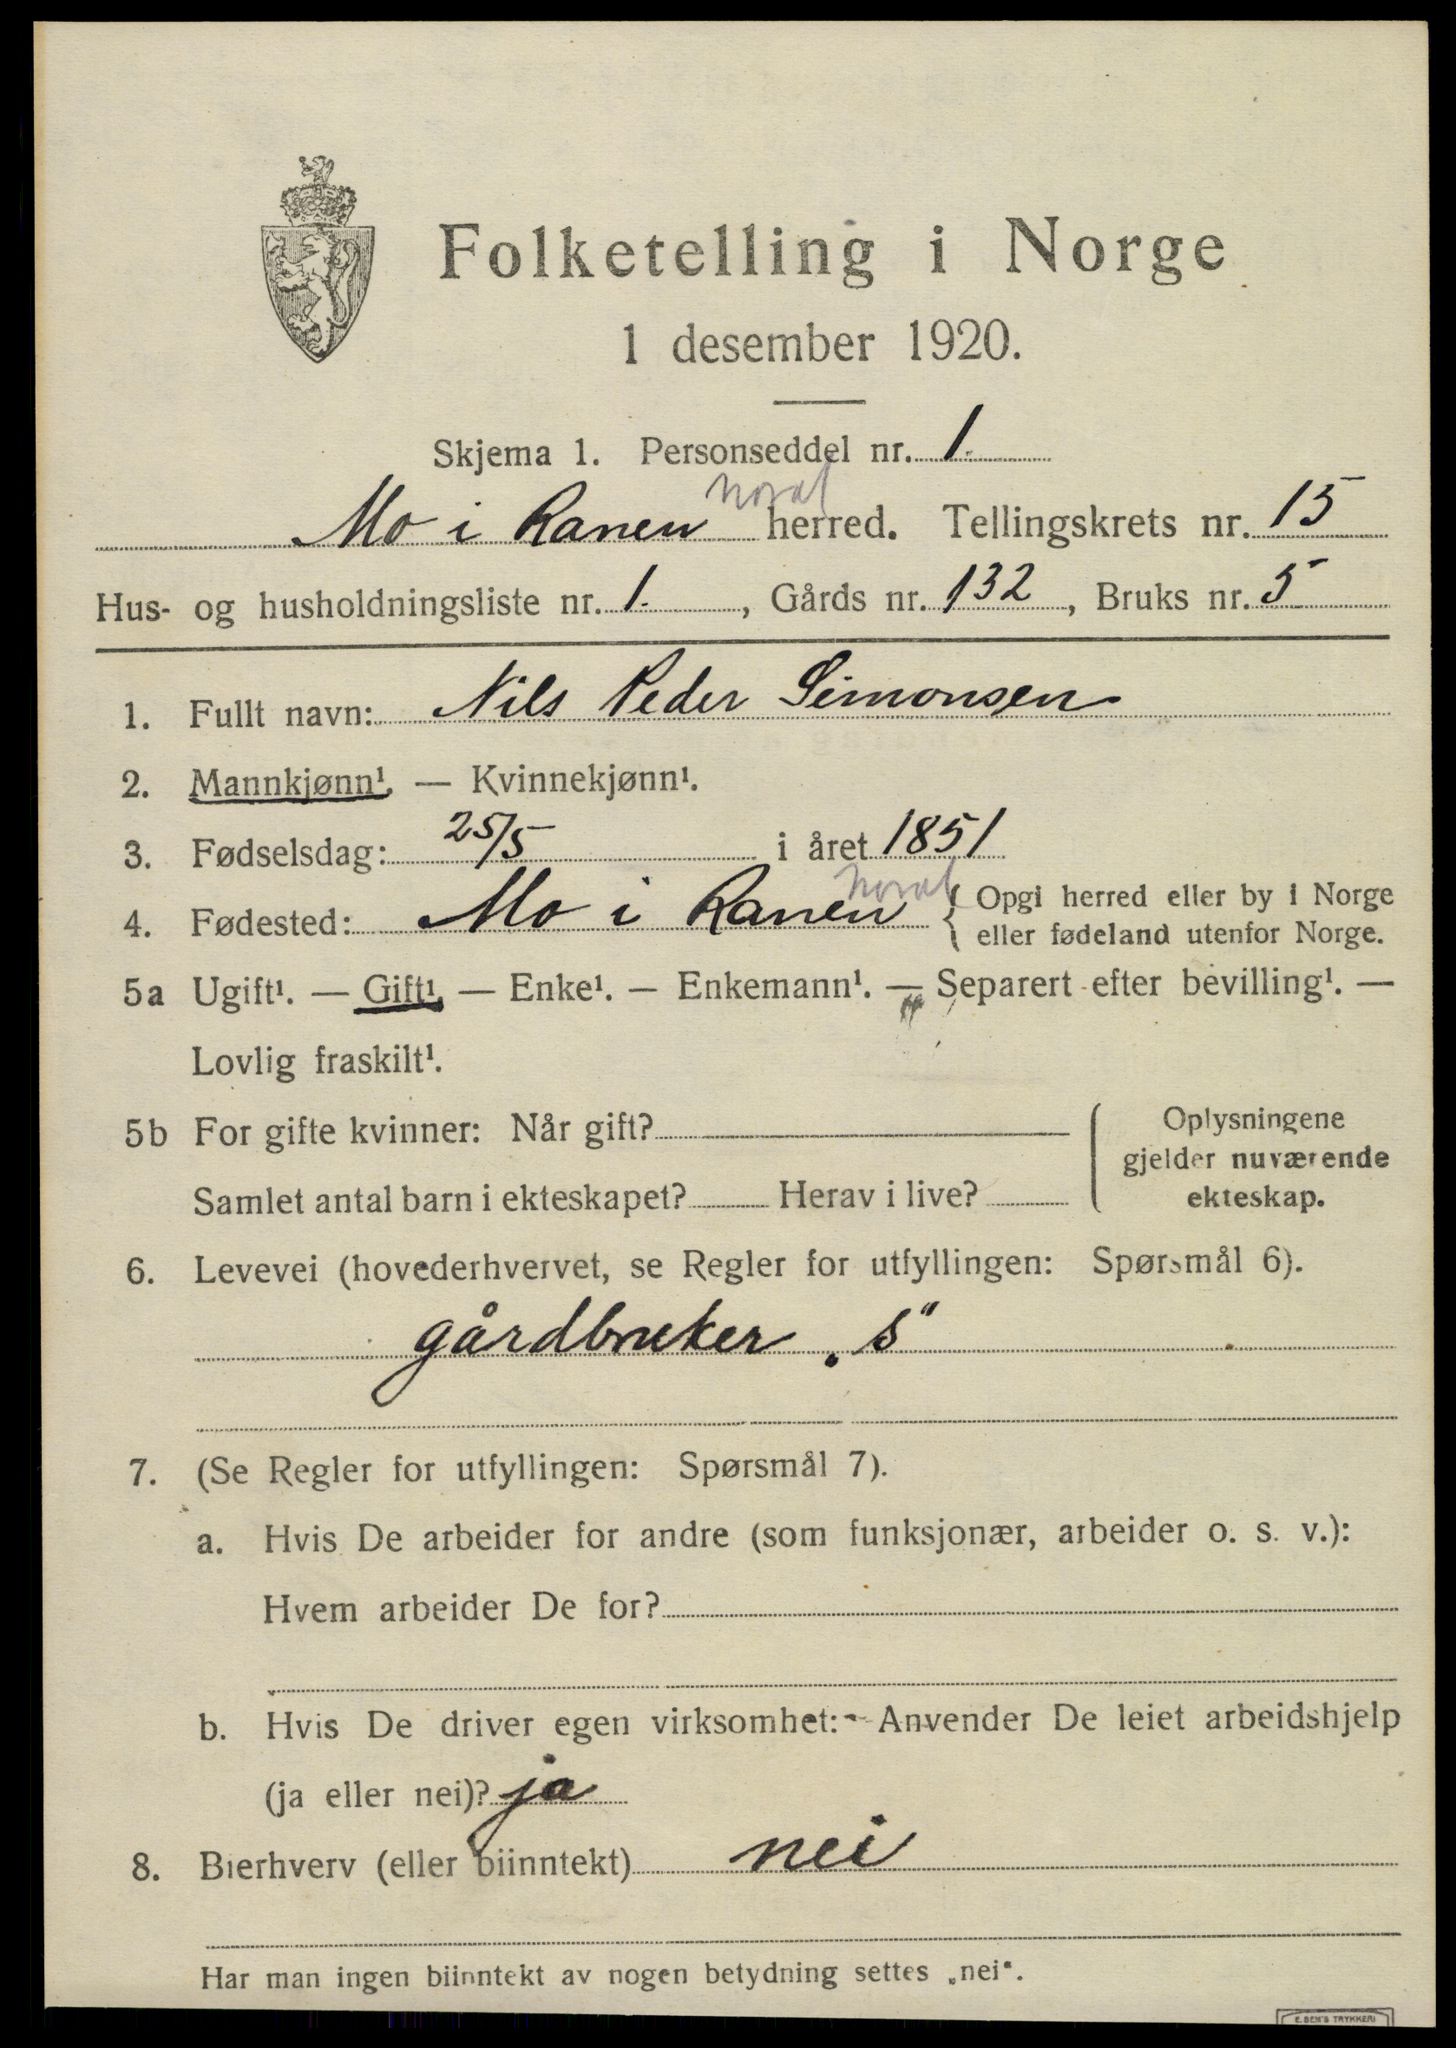 Folketelling i Norge
1 desember 1920.
Skjema 1. Personseddel nr. 1.
Mo i Ranen herred. Tellingskrets nr. 15
Hus- og husholdningsliste nr. 1., Gårds nr. 132, Bruks nr. 5
1. Fullt navn: Nils Peder Simonsen
2. Mannkjønn¹. — Kvinnekjønn¹.
3. Fødselsdag: 25/5 i året 1851
4. Fødested: Mo i Ranen { Opgi herred eller by i Norge
eller fødeland utenfor Norge.
5a Ugift¹. — Gift¹. — Enke¹. — Enkemann¹. — Separert efter bevilling¹. —
Lovlig fraskilt¹.
5b For gifte kvinner: Når gift?
Samlet antal barn i ekteskapet? Herav i live?
Oplysningene
gjelder nuværende
ekteskap.
6. Levevei (hovederhvervet, se Regler for utfyllingen: Spørsmål 6).
gårdbruker „s"
7. (Se Regler for utfyllingen: Spørsmål 7).
a. Hvis De arbeider for andre (som funksjonær, arbeider o. s. v.):
Hvem arbeider De for?
b. Hvis De driver egen virksomhet:- Anvender De leiet arbeidshjelp
(ja eller nei)? ja
8. Bierhverv (eller biinntekt) nei
Har man ingen biinntekt av nogen betydning settes „nei".
E. SEM'S TRYKKERI